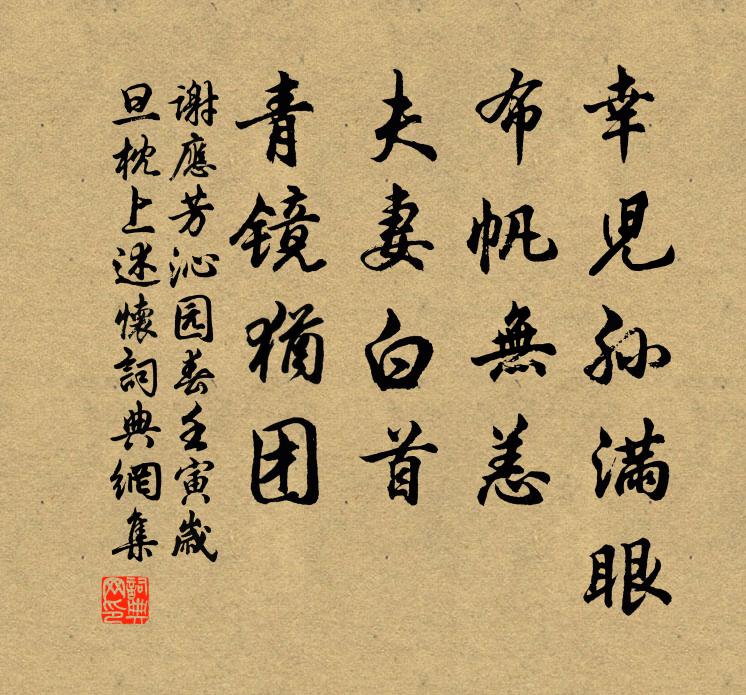 幸兒孙满眼
布帆無恙
夫妻白首
青镜猶团
谢應芳沁园春壬寅歲
旦枕上述懷詞典網集
詞典网印